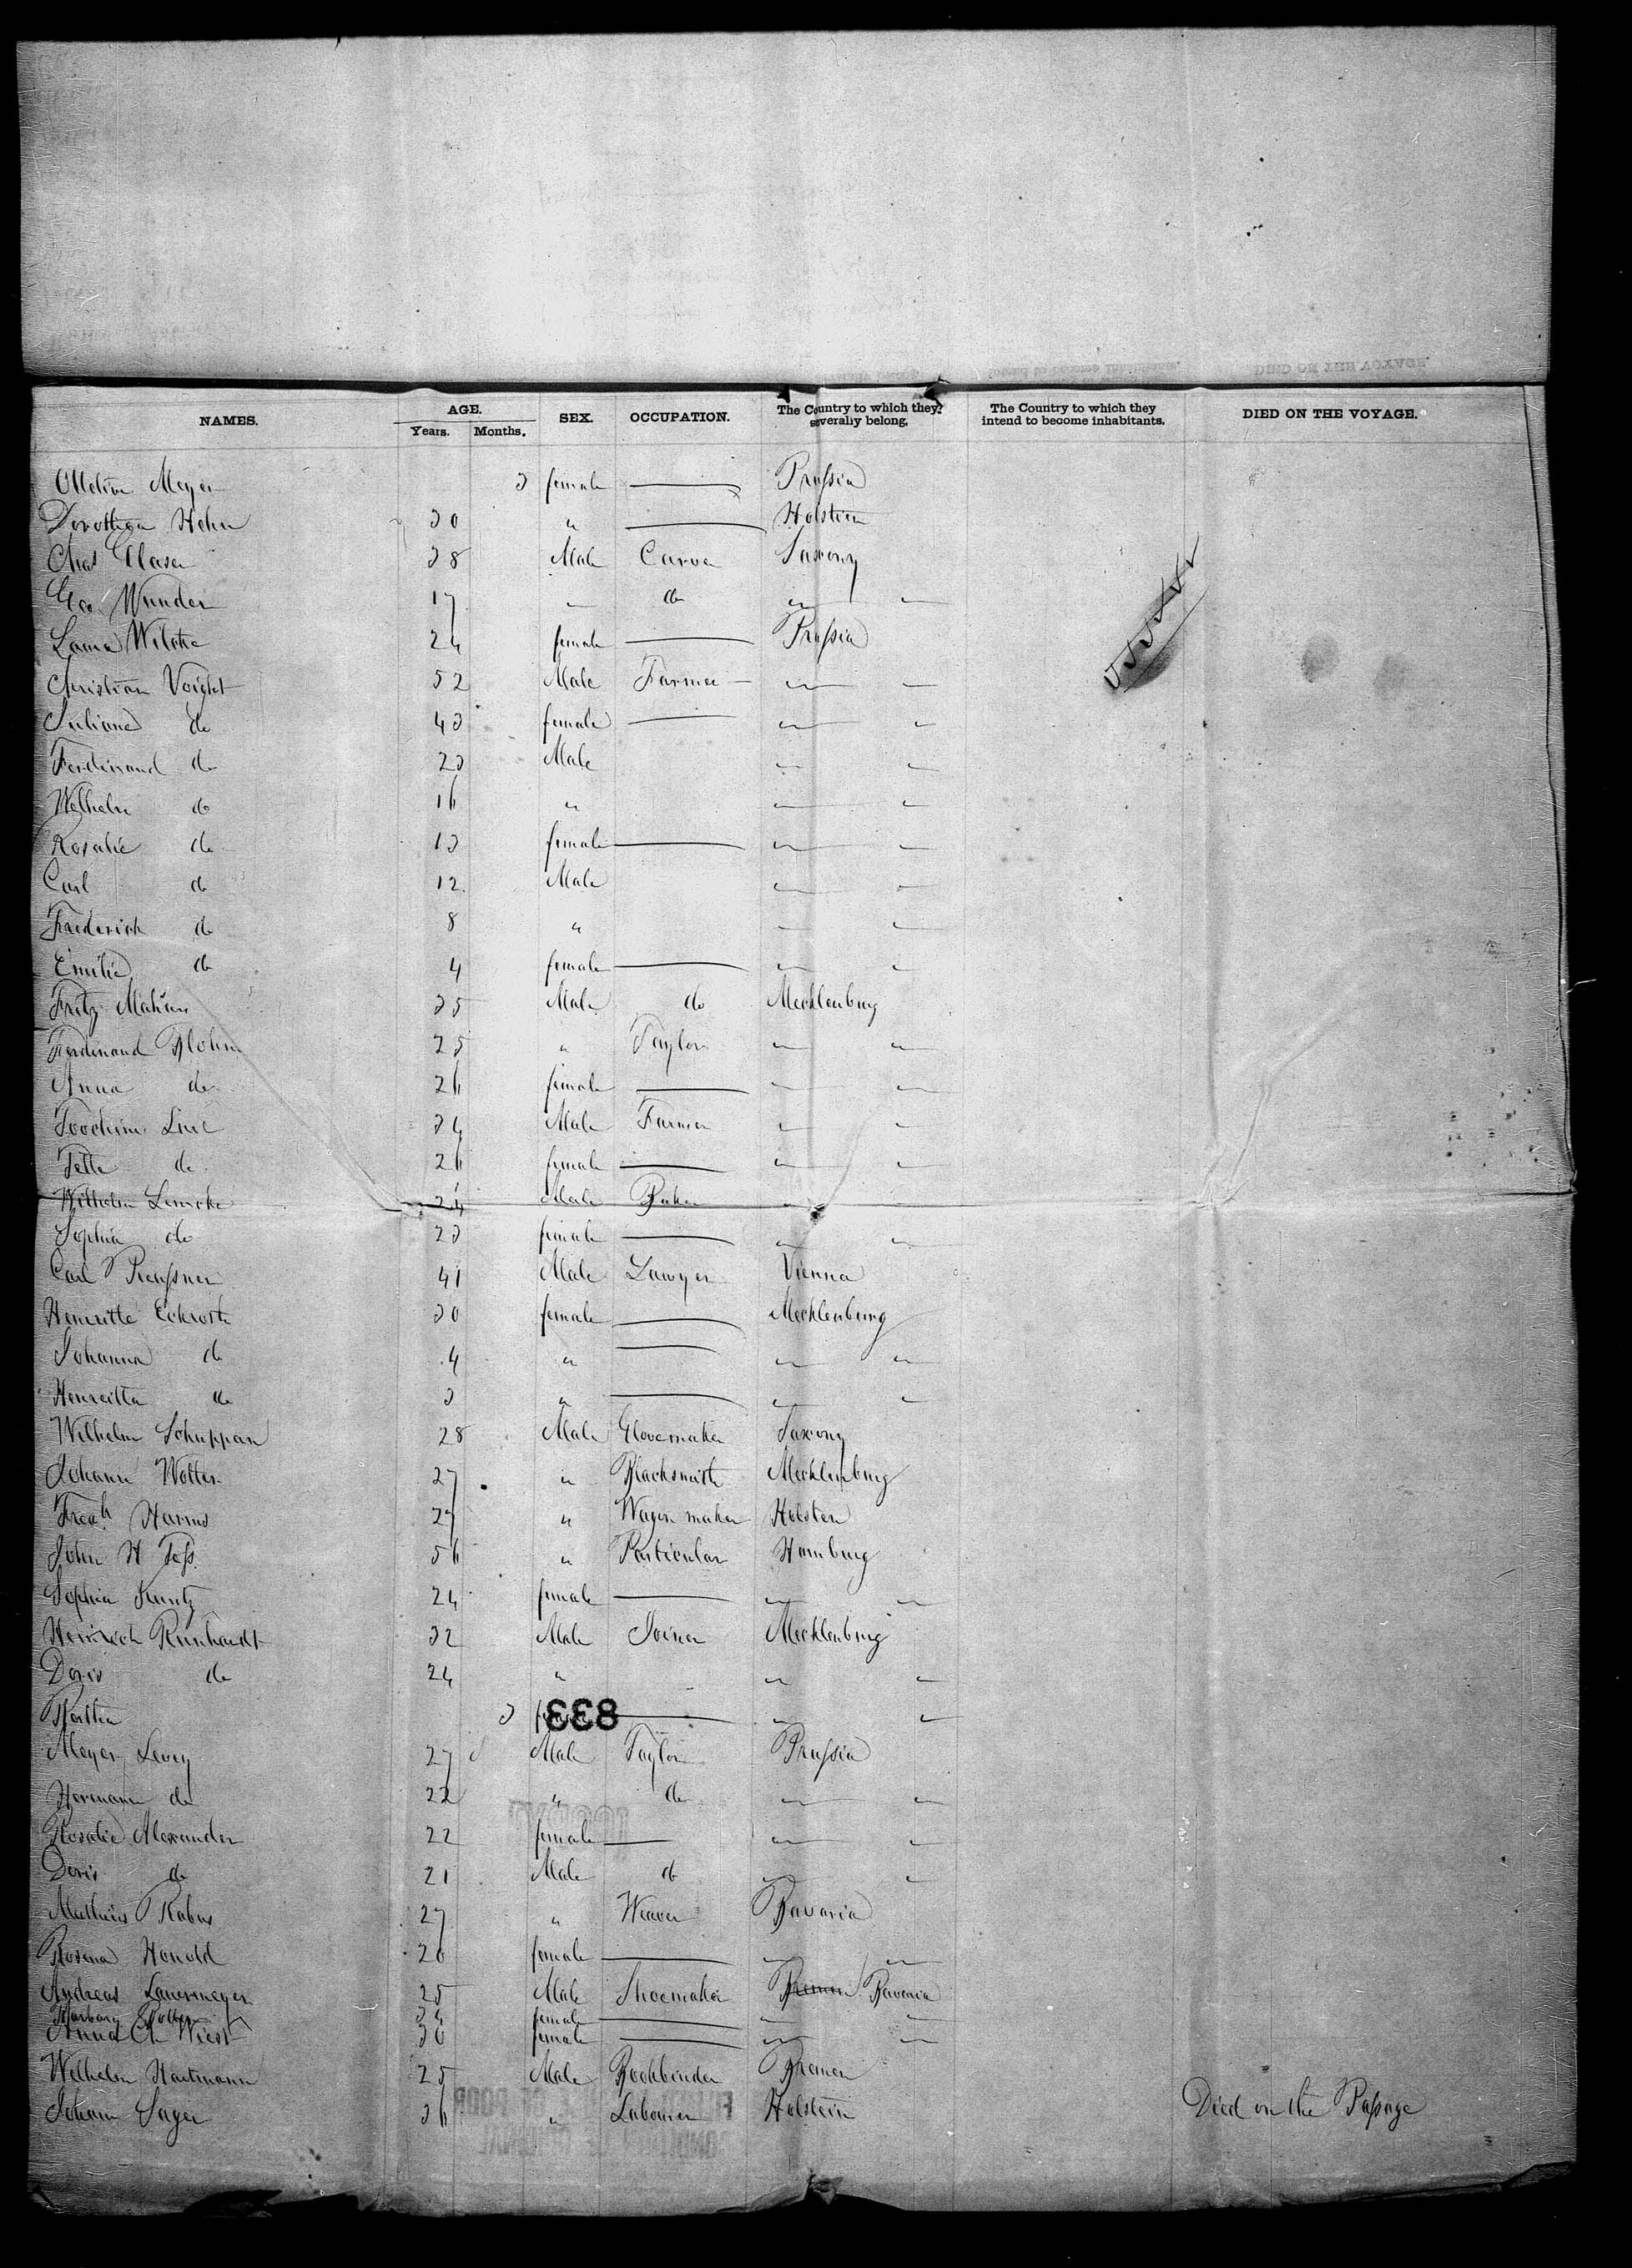 NAMES. AGE. SEX. OCCUPATION. The Country to which they severally belong. The Country to which they intend to become inhabitants. DIED ON THE VOYAGE.
Years. Months.
Meyer 3 female Prussia
Dorothea Hehn 30 " Holstein
Chas Glaser 38 Male Carver Saxony
Geo. Wunder 17 do
Laura Wilcke 24 female Prussia
Christian Voight 52 Male Farmer
Juliana do 43 female
Ferdinand do 23 Male
Wilhelm do 16 "
Rosalie do 13 female
Carl do 12 Male
Fraederich do 8 "
Emilie do 4 female
Fritz 35 Male do Mecklenburg
Ferdinand Blohm 25 " Taylor
Anna do 26 female
Joochim 34 Male Farmer
do 26 female
Wilhelm Lemcke 24 Male Baker
Sophia do 23 female
Carl Preussner 41 Male Lawyer Vienna
Henriette 30 female Mecklenburg
Johanna do 4 "
Henreitta do 3 "
Wilhelm Schuppan 28 Male Glovemaker Saxony
Johann Wolter 27 " Blacksmith Mecklenburg
Fredk Harms 27 " Wagon maker Holstein
John H 56 " Particular Hamburg
Sophia Kuntz 24 female
Heinrich Reinhardt 32 Male Joiner Mecklenburg
Doris do 24 "
3 833
Meyer Levey 27 Male Taylor Prussia
Hermann do 22 " do
Rosalie Alexander 22 female
Doris do 21 Male do
Mathias Rabus 27 " Weaver Bavaria
Rosina Honold 26 female
Andreas Lauermeyer 25 Male Shoemaker Bremen Bavaria
Barbara 34 female
Anna Ch Wiest 30 female
Wilhelm Hartmann 25 Male Bookbinder Bremen
Johann Sager 36 " Labourer Holstein Died on the Passage